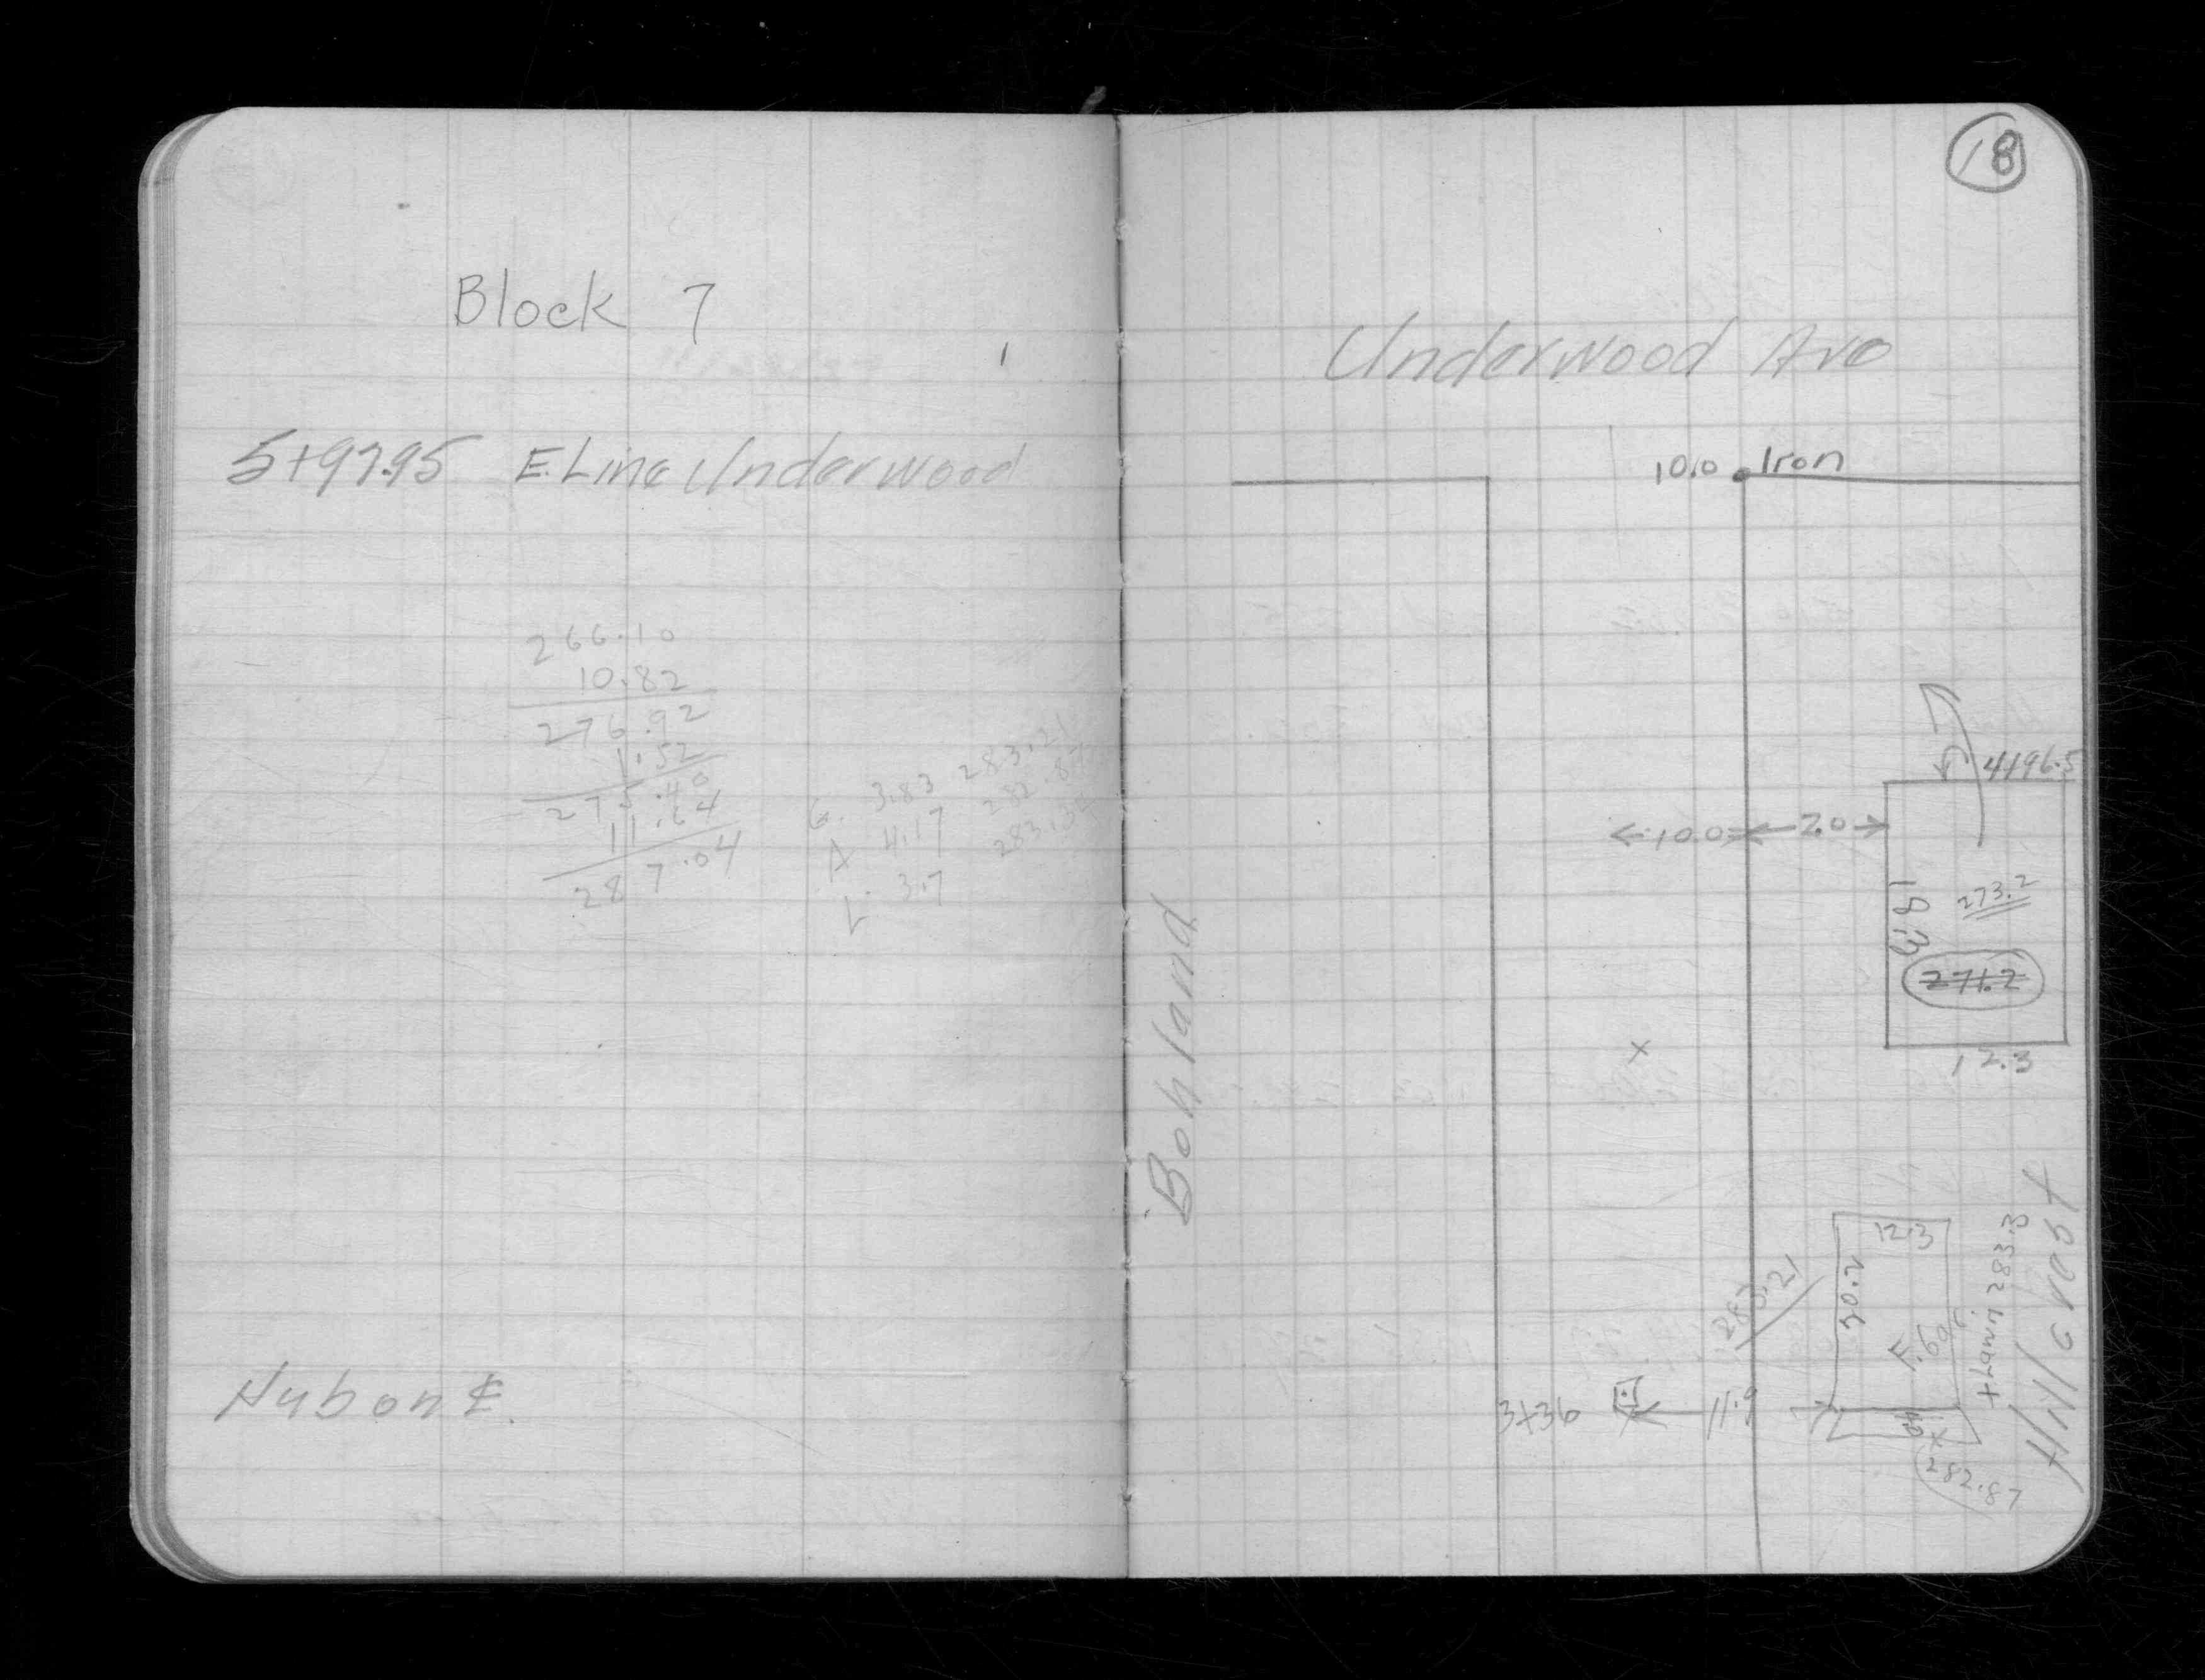 Block 7
5+97.95 E. Line Underwood
266.10
10.82
276.92
1.52
275.40
11.64
287.04
G. 3.83 283.21
A 4.17 282.87
L. 3.7
Hub on ₵.
18
Underwood Ave
10.0 Iron
4+96.5
10.0 2.0
18.3
273.2
271.2
12.3
Bohland
Hillcrest
12.3
20.2
283.21
+Lawn 283.3
3+36 11.9
282.87